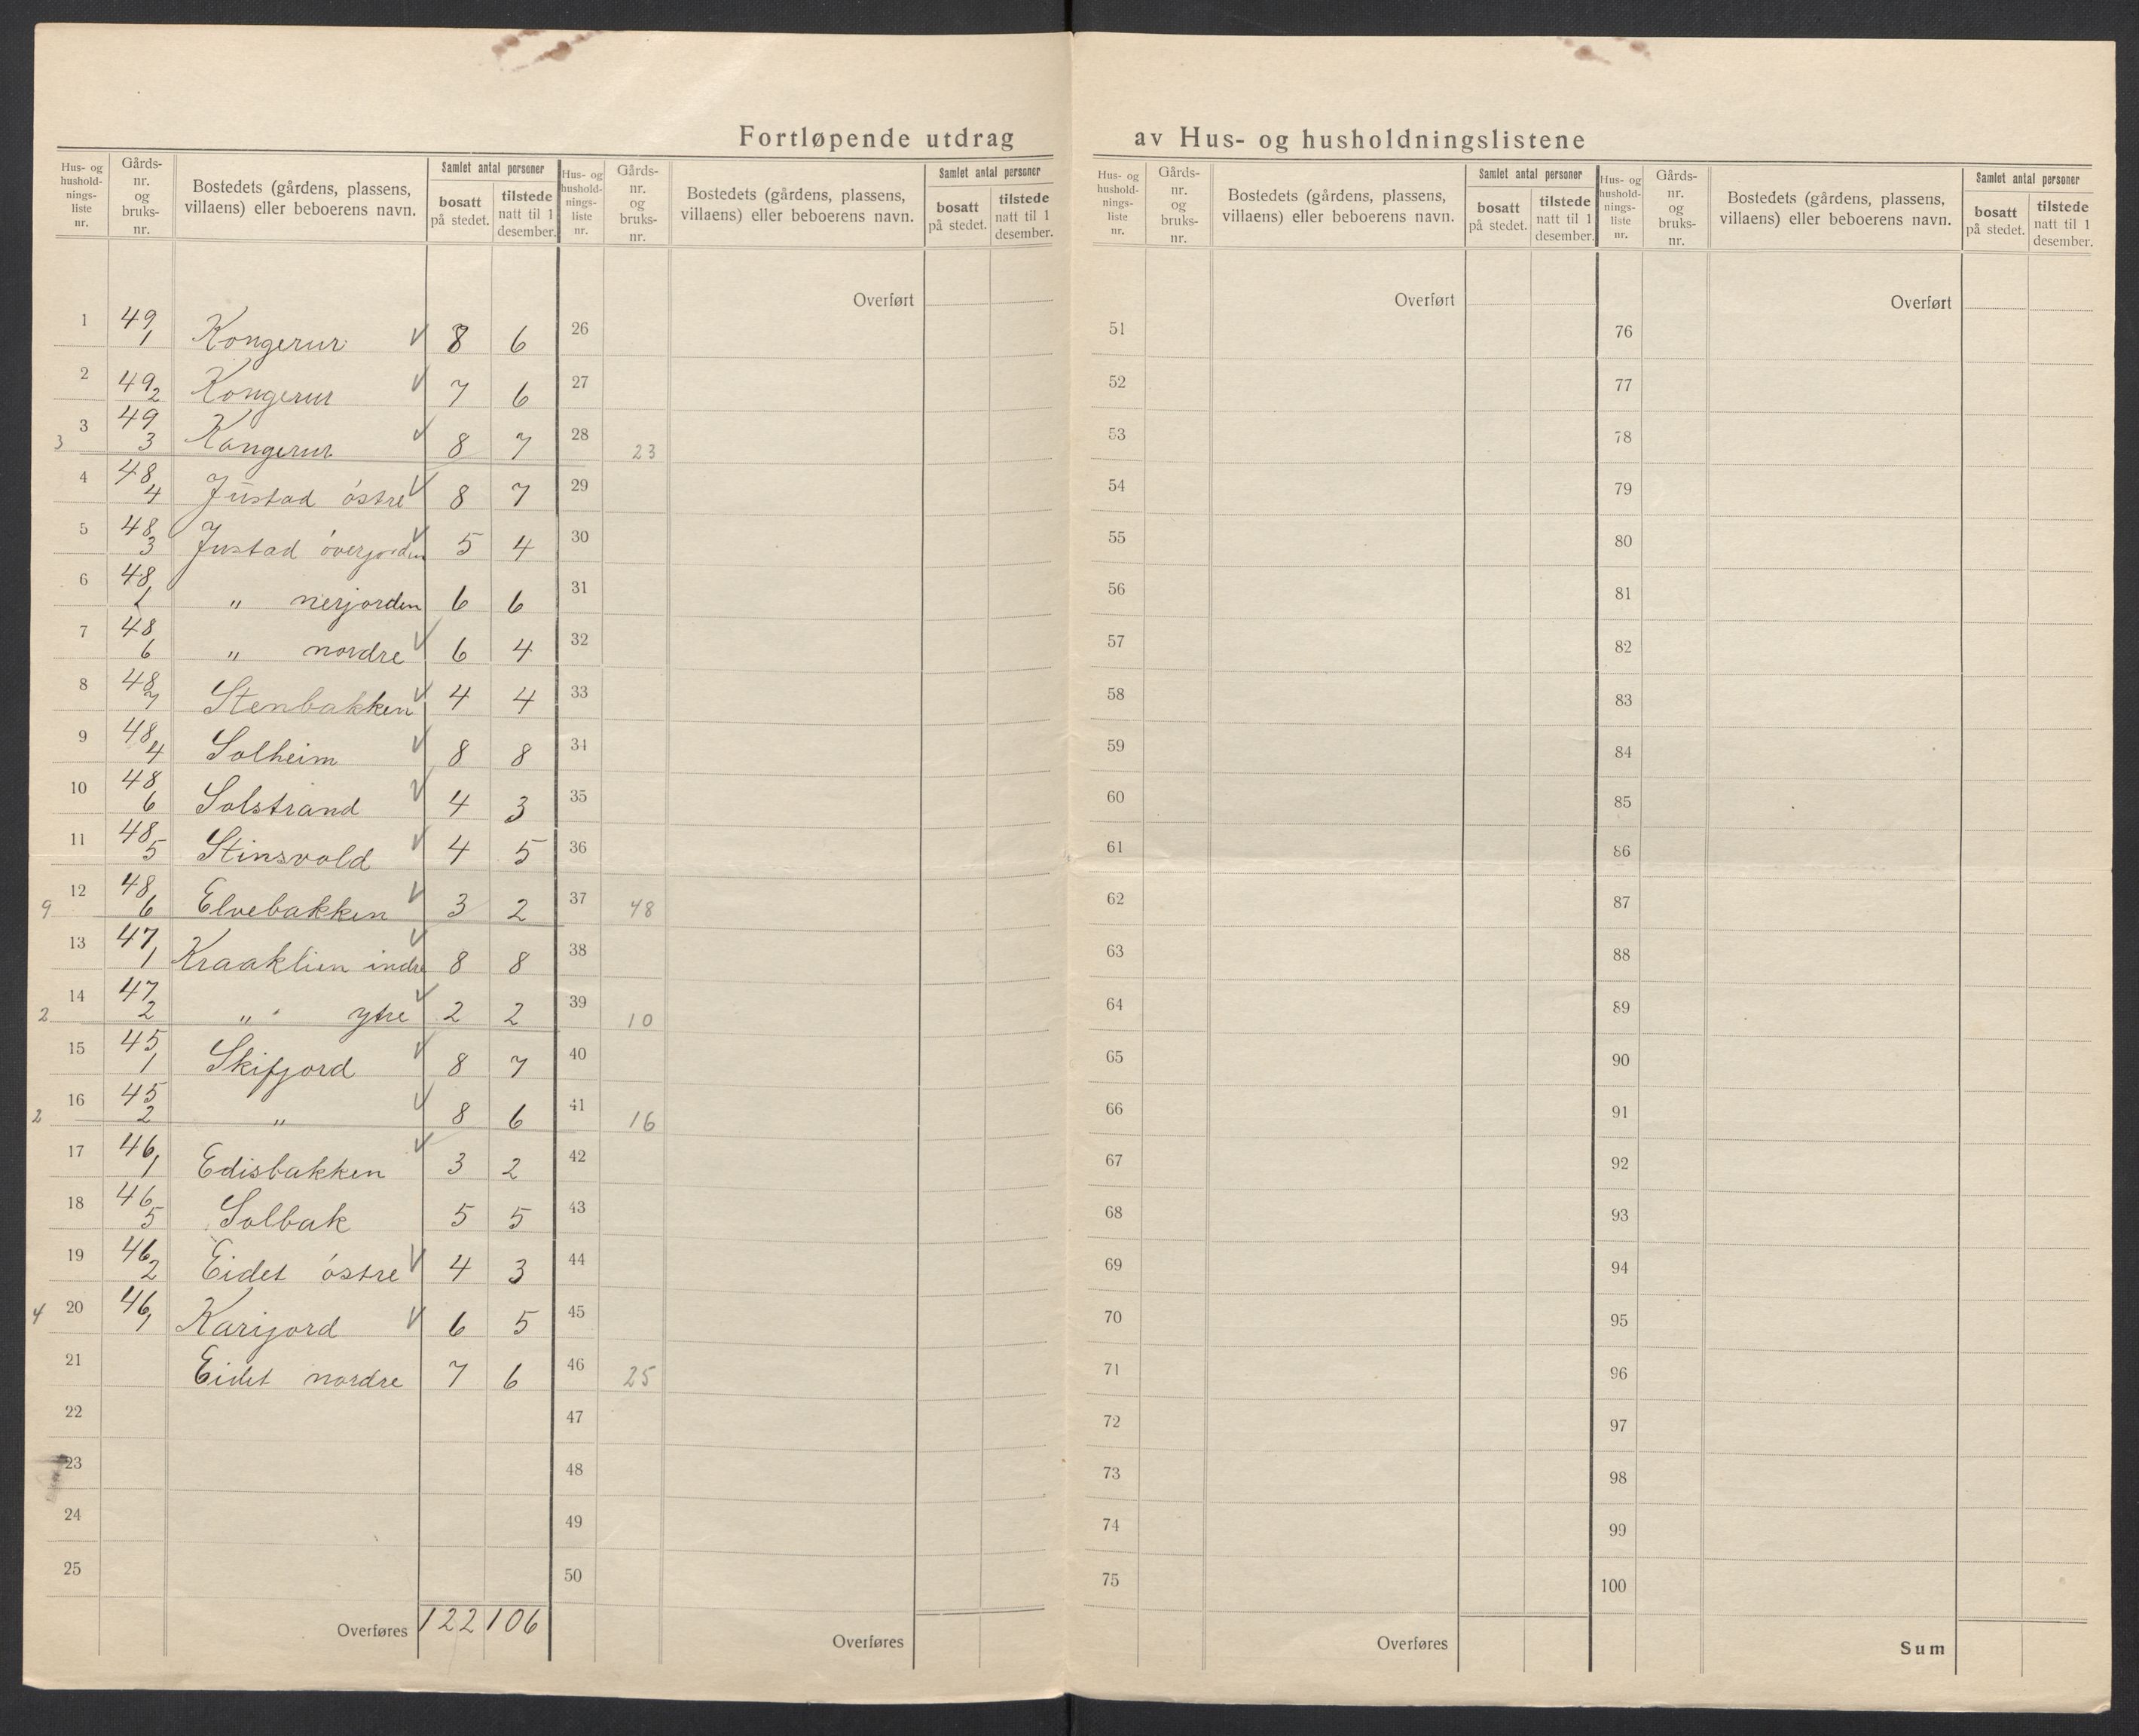 Fortløpende utdrag av Hus- og husholdningslistene
Hus- og hushold-nings-liste nr. Gårds-nr. og bruks-nr. Bostedets (gårdens, plassens, villaens) eller beboerens navn. Samlet antal personer bosatt på stedet. tilstede natt til 1 desember.
Hus- og hushold-nings-liste nr. Gårds-nr. og bruks-nr. Bostedets (gårdens, plassens, villaens) eller beboerens navn. Samlet antal personer bosatt på stedet. tilstede natt til 1 desember.
Hus- og hushold-nings-liste nr. Gårds-nr. og bruks-nr. Bostedets (gårdens, plassens, villaens) eller beboerens navn. Samlet antal personer bosatt på stedet. tilstede natt til 1 desember.
Hus- og hushold-nings-liste nr. Gårds-nr. og bruks-nr. Bostedets (gårdens, plassens, villaens) eller beboerens navn. Samlet antal personer bosatt på stedet. tilstede natt til 1 desember.
Overført Overført Overført
1 49/1 Kongerur 8 6 26 51 76
2 49/2 Kongerur 7 6 27 52 77
3 3 49/3 Kongerur 8 7 28 23 53 78
4 48/4 Justad östre 8 7 29 54 79
5 48/3 Justad överjorden 5 4 30 55 80
6 48/1 " nerjorden 6 6 31 56 81
7 48/6 " nordre 6 4 32 57 82
8 48/7 Stenbakken 4 4 33 58 83
9 48/4 Solheim 8 8 34 59 84
10 48/6 Solstrand 4 3 35 60 85
11 48/5 Stinsvold 4 5 36 61 86
9 12 48/6 Elvebakken 3 2 37 48 62 87
13 47/1 Kraaklien indre 8 8 38 63 88
2 14 47/2 " ytre 2 2 39 10 64 89
15 45/1 Skifjord 8 7 40 65 90
2 16 45/2 " 8 6 41 16 66 91
17 46/1 Edisbakken 3 2 42 67 92
18 46/5 Solbak 5 5 43 68 93
19 46/2 Eidet östre 4 3 44 69 94
4 20 46/1 Karijord 6 5 45 70 95
21 Eidet nordre 7 6 46 25 71 96
22 47 72 97
23 48 73 98
24 49 74 99
25 50 75 100
Overføres 122 106 Overføres Overføres Sum